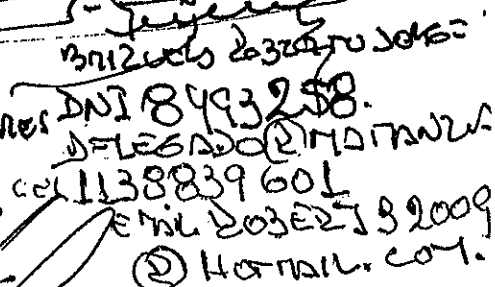 BRIZUELA ROBERTO JORGE
DNI 8493258.
DELEGADO (R) MATANZA
CEL 1138839601
EMAIL ROBERTJB2009
@ HOTMAIL.COM.